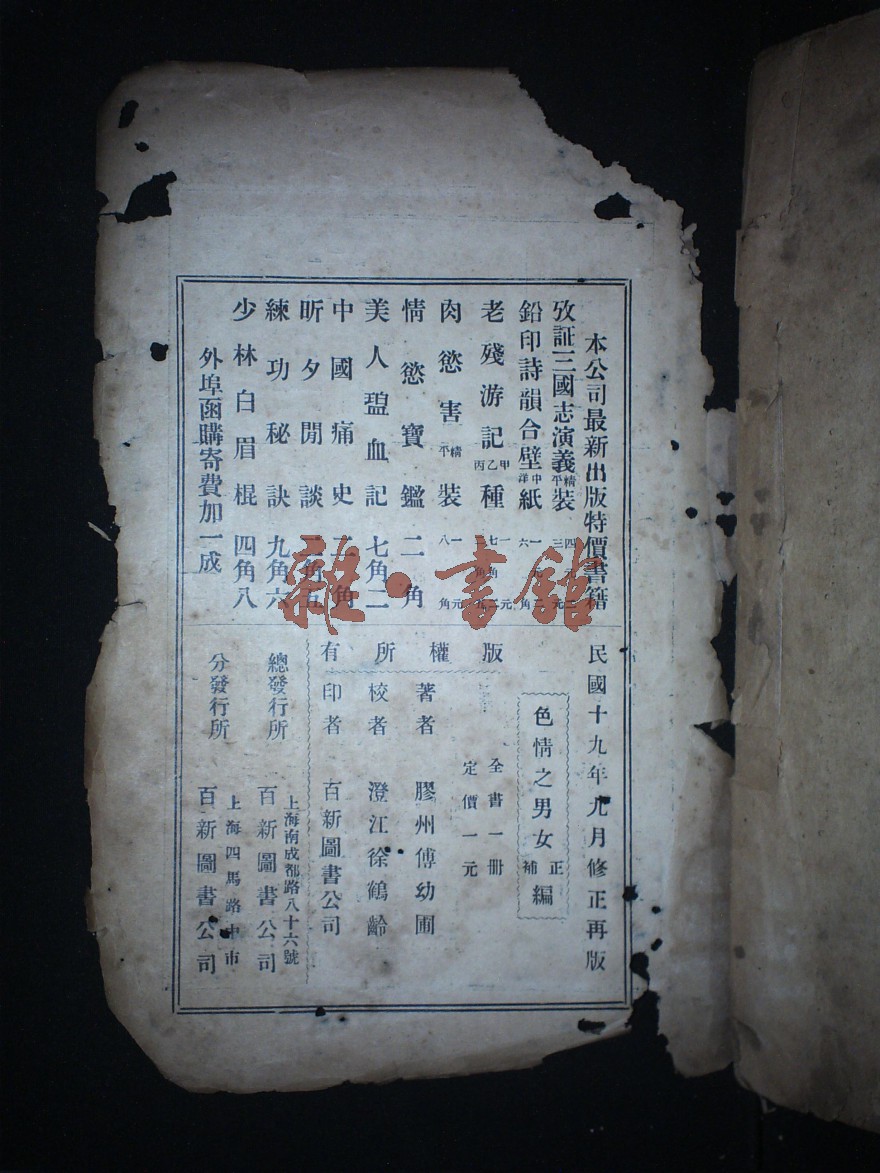 本公司最新出版特價書籍
攷証三國志演義 精平裝 四元三 三元
鉛印詩韻合璧 中洋紙 一元二 六角
老殘游記 甲乙丙種 一元 七角二 角九
肉慾害 精平裝 一元 八角
情慾寶鑑 二角
美人碧血記 七角二
中國痛史 二角
昕夕閒談 角五
練功秘訣 九角六
少林白眉棍 四角八
外埠函購寄費加一成
民國十九年九月修正再版
色情之男女 正補編
全書一冊
定價一元
版權所有
著者 膠州傅幼圃
校者 澄江徐鶴齡
印者 百新圖書公司
總發行所 上海南成都路八十六號 百新圖書公司
分發行所 上海四馬路中市 百新圖書公司
雜·書館